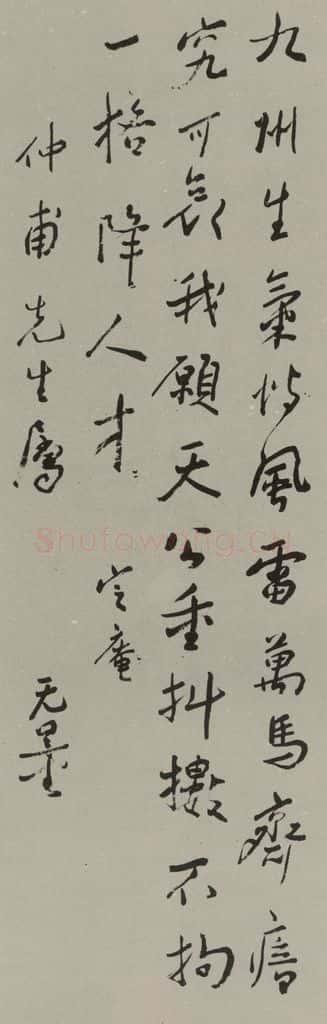 九州生氣恃風雷萬馬齊瘖
究可哀我願天公重抖擻不拘
一格降人才 定庵
仲甫先生屬 无量
Shufawang.cn